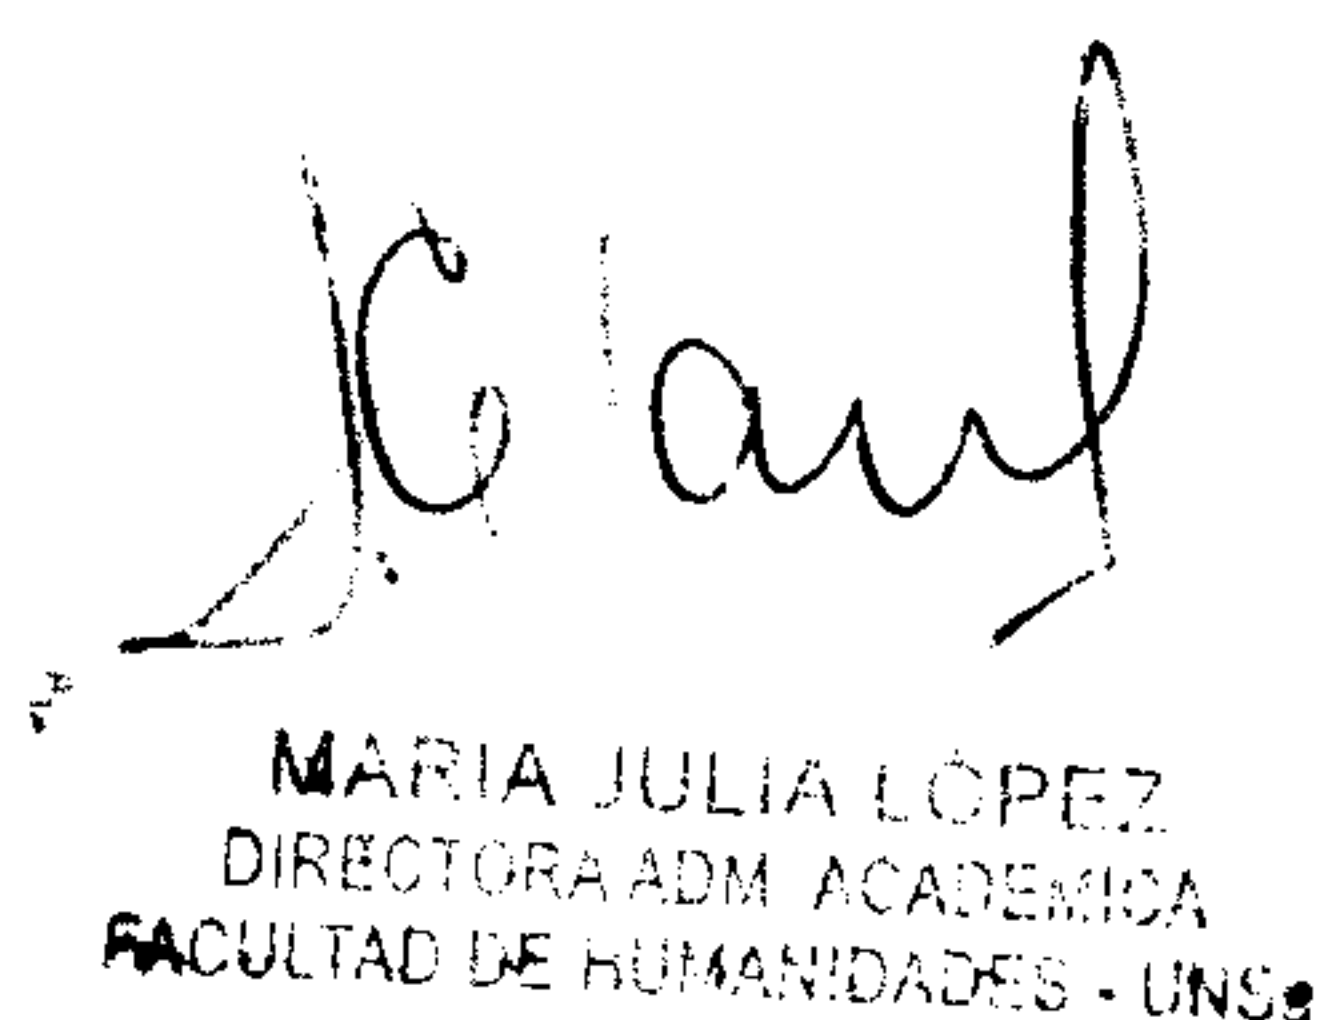 MARIA JULIA LÓPEZ
DIRECTORA ADM ACADEMICA
FACULTAD DE HUMANIDADES - UNSa